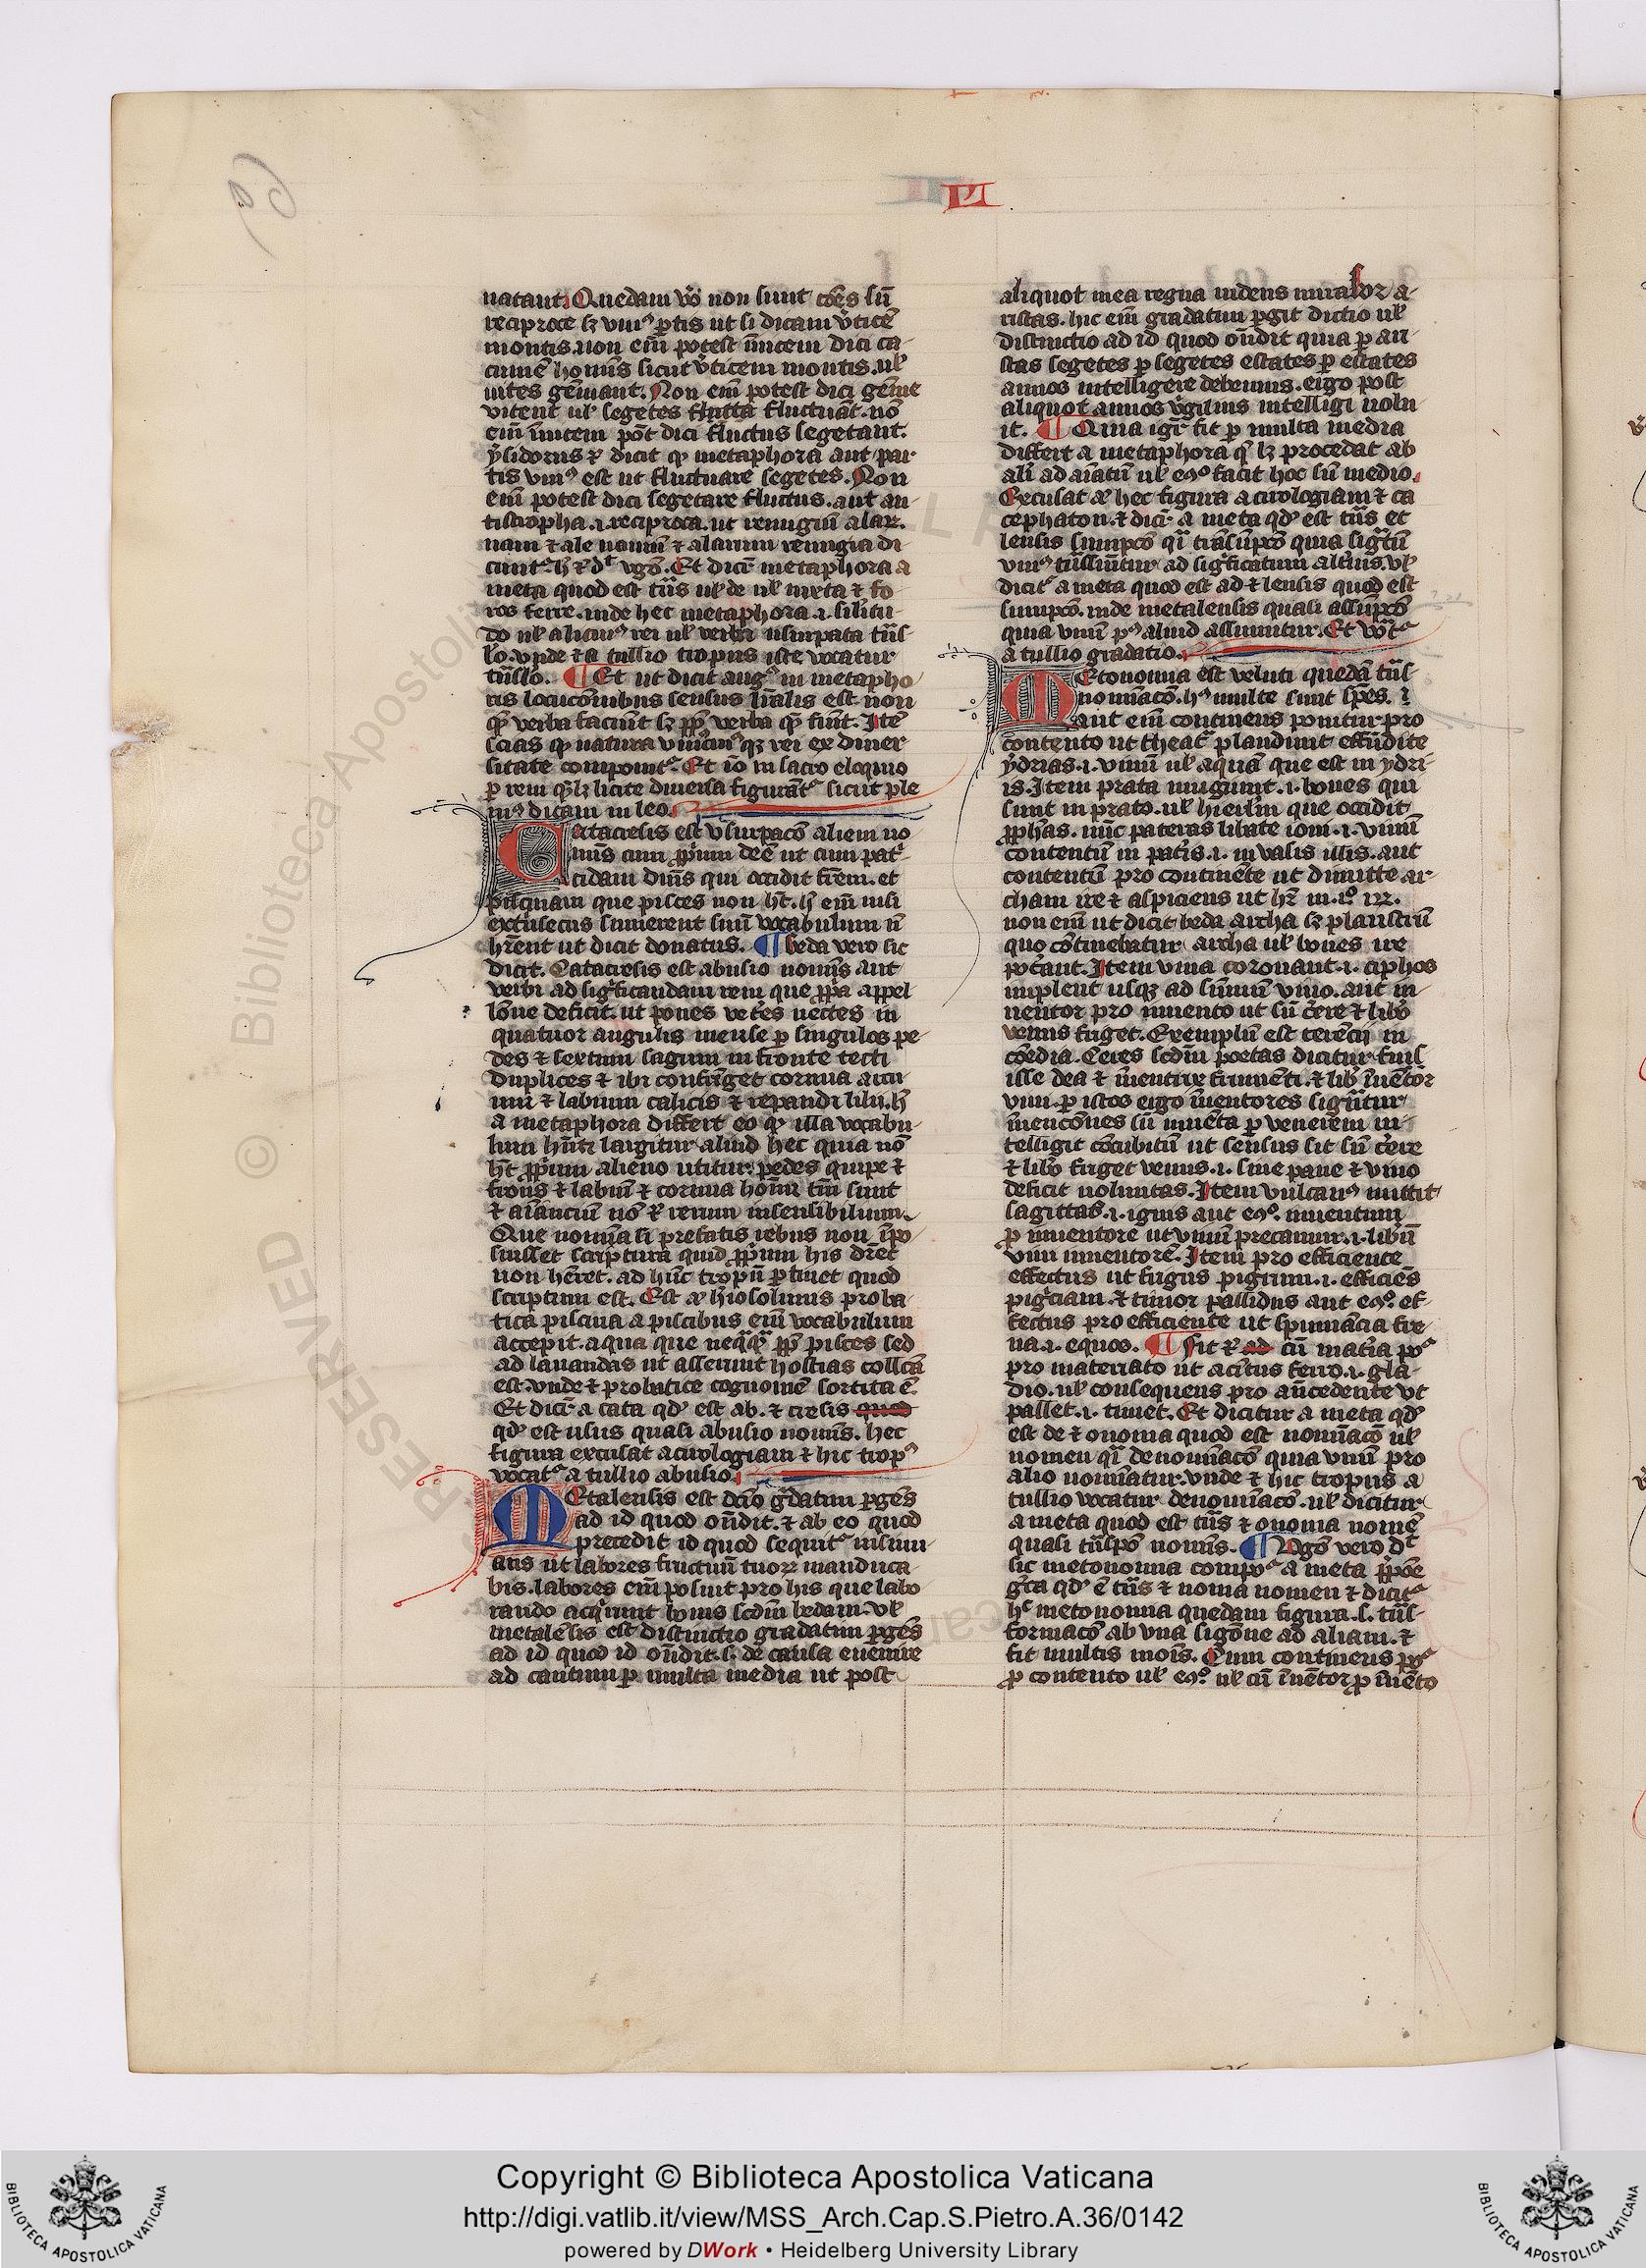 natant. Quedam vo non sunt coes sꝫ
reciproce sꝫ uniꝰ ptis ut si dicam vtice
montis. non eni potest inuicem dici ca-
cume hominis sicut vticem montis. ul
uites gemant. Non eni potest dici geme
vitent ul segetes fluctuat. no
eni inuicem pot dici fluctus segetant.
ysidorus dicit qꝫ metaphora aut par
tis uniꝰ est ut fluctuare segetes. Non
eni potest dici segetare fluctus. aut an
tistropha .i. reciproca. ut remigiu alaꝝ.
nam ⁊ ale nauiu ⁊ alarum remigia di
cunt. Et dicit metaphora a
meta quod est tns ul de ul meta ⁊ fo
ros ferre. inde hec metaphora .i. silitu-
do ul alicuiꝰ rei ul verbi usurpata tns
lo. vnde ⁊ a tullio tropus iste vocatur
tnslo. ¶ Et ut dicit augꝰ in metapho
ris locucionibus sensus lralis est non
que verba faciunt sꝫ verba que fiunt. Ite
scias qꝫ natura uniuscuiusqꝫ rei ex diuer
sitate componit. Et io in sacro eloquio
p rem quelibet licite diuersa figurat sicut ple
niꝰ dicam in leo.
Catacresis est usurpaco alieni no
minis cum ppriu dee ut cum patri
cidam dicimus qui occidit frem. et
piscinam que pisces non ht. h eni nisi
extrisecus sumerent suu vocabulum n
hrent ut dicit donatus. ¶ beda vero sic
dicit. Catacresis est abusio nominis aut
verbi ad significandam rem que ppria appel
lone deficit. ut pones vectes in
quatuor angulis mense p singulos pe
des ⁊ sextum sagum in fronte tecti
duplices ⁊ ibi confringet cornua arcu
um ⁊ labium calicis ⁊ repandi lilii. h
a metaphora differt eo qꝫ illa vocabu
lum hnti largitur aliud hec quia no
ht ppriu alieno utitur. pedes quipe ⁊
frons ⁊ labiu ⁊ cornua hoim tm sunt
⁊ aiancium no rerum insensibilium.
Que nomina si prefatis rebus non ipo
suisset scriptura quid ppriu his dret
non heret. ad hunc tropu ptinet quod
scriptum est. Est hiosolimis proba
tica piscina a piscibus eni vocabulum
accepit aqua que nequaquam ppter pisces sed
ad lauandas ut asserunt hostias collcã
est. vnde ⁊ probatice cognome sortita e.
Et dicit a cata qd est ab. ⁊ cresis quod
qd est usus quasi abusio nominis. hec
figura excusat acirologiam ⁊ hic tropꝰ
vocat a tullio abusio.
Metalensis est dictio gradatim pgens
ad id quod ondit. ⁊ ab eo quod
precedit id quod sequit insinu
ans ut labores fructuu tuoꝝ manduca
bis. labores eni posuit pro his que labo
rando acquirunt bonis scdm bedam. Ul
metalesis est distinctio gradatim pgens
ad id quod id ondit. s. de causa euenire
ad cautum p multa media ut post
aliquot mea regna uidens mirabor a-
ristas. hic eni gradatim pgit dictio ul
distinctio ad id quod ondit quia p ari
stas segetes p segetes estates p estates
annos intelligere debemus. ergo post
aliquot annos virgilius intelligi uolu
it. ¶ Quia igitur fit p multa media
differt a metaphora que lꝫ procedat ab
ali ad aiatum ul eo facit hoc sine medio.
Excusat hec figura acirologiam ⁊ ca
cephaton. ⁊ dicit a meta qd est tns et
lensis sumptio quasi transumptio quia signatu
uniꝰ transumitur ad significatum alterius. Ul
dicit a meta quod est ad ⁊ lensis quod est
sumptio. inde metalensis quasi assumptio
quia unum post aliud assumitur. Et vocat
a tullio gradatio.
Metonomia est veluti quedam tns
nominaco. hꝰ multe sunt spes.
aut eni continens ponitur pro
contento ut theatra plaudunt effundite
ydrias .i. vinu ul aqua que est in ydri-
is. Item prata mugiunt .i. boues qui
sunt in prato. ul hierlm que occidit
pphas. nunc pateras libate ioui .i. vinum
contentu in pateris .i. in vasis illis. aut
contentum pro continente ut dimitte ar-
cham ire ⁊ aspiciens ut hr in .i.
non eni ut dicit beda archa sꝫ plaustru
quo continebatur archa ul boues ire
poterant. Item vina coronant .i. ciphos
implent usqꝫ ad summum vino. aut in-
uentor pro inuento ut sine cerere ⁊ libero
venus friget. Exemplum est terencij in
comedia. Ceres scdm poetas dicitur fuis
isse dea ⁊ inuentrix frumenti. ⁊ liber inuentor
vini. p istos ergo inuentores signantur
inuenciones sui inuenta p venerem in-
telligit concubitum ut sensus sit sine cerere
⁊ libero friget venus .i. sine pane ⁊ vino
deficit uoluntas. Item vulcanꝰ mittit
sagittas .i. ignis aut eo. inuentum
p inuentore ut vinum precamur .i. liberu
vini inuentore. Item pro efficiente
effectus ut frigus pigrum .i. efficiens
pigriciam. ⁊ timor pallidus aut eo. ef-
fectus pro efficiente ut spumancia fre
na .i. equos. ¶ Sit cum materia
pro materiato ut acintus ferro .i. gla
dio. ul consequens pro antecedente ut
pallet .i. timet. Et dicitur a meta qd
est de ⁊ onoma quod est nominaco ul
nomen quasi denominaco quia unum pro
alio nominatur. vnde ⁊ hic tropus a
tullio vocatur denominaco. ul dicitur
a meta quod est tns ⁊ onoma nome
quasi tnspo nominis. ¶ Ugo vero dt
sic metonomia componit a meta prepone
greca qd e tns ⁊ noma nomen ⁊ dicit
hec metonomia quedam figura. s. tns-
formaco ab una significatione ad aliam. ⁊
fit multis modis. Cum continens
p contento ul eo. ul cum inuentor p inuento
Copyright © Biblioteca Apostolica Vaticana
http://digi.vatlib.it/view/MSS_Arch.Cap.S.Pietro.A.36/0142
powered by DWork • Heidelberg University Library